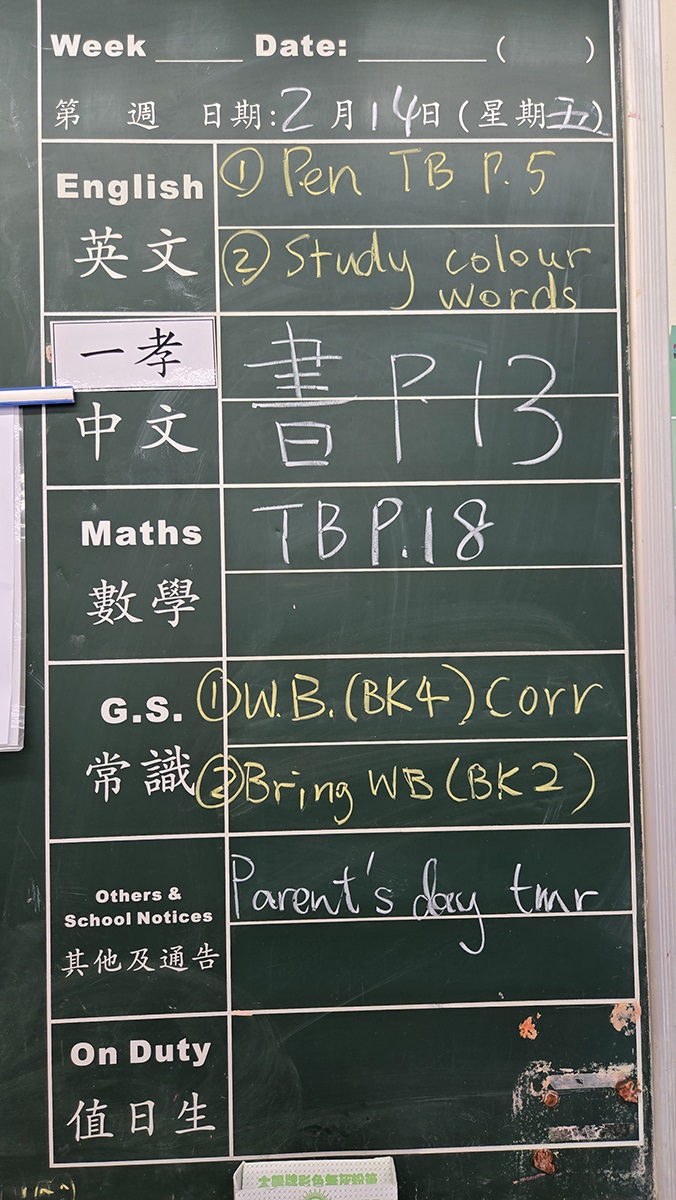 Week _____ Date: ________ ( )
第 週 日期: 2 月 14 日 (星期五)
English ① Pen TB P.5
英文 ② Study colour
words
一孝
中文 書 P.13
Maths TB P.18
數學
G.S. ① W.B. (BK4) Corr
常識 ② Bring WB (BK2)
Others & Parent's day tmr
School Notices
其他及通告
On Duty
值日生